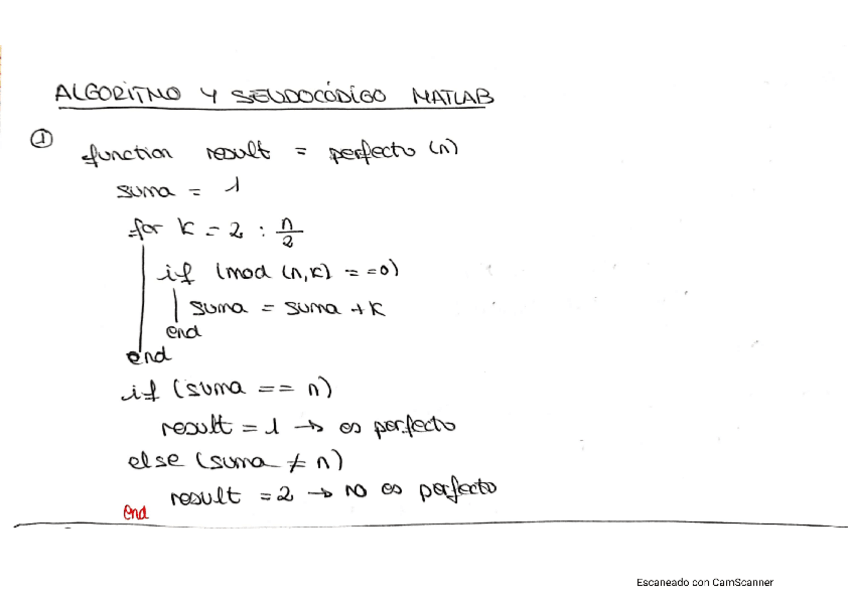 ALGORITMO Y SEUDOCÓDIGO MATLAB
① function result = perfecto (n)
suma = 1
for k = 2 : n/2
if (mod (n,k) == 0)
suma = suma + k
end
end
if (suma == n)
result = 1 → es perfecto
else (suma ≠ n)
result = 2 → no es perfecto
end
Escaneado con CamScanner